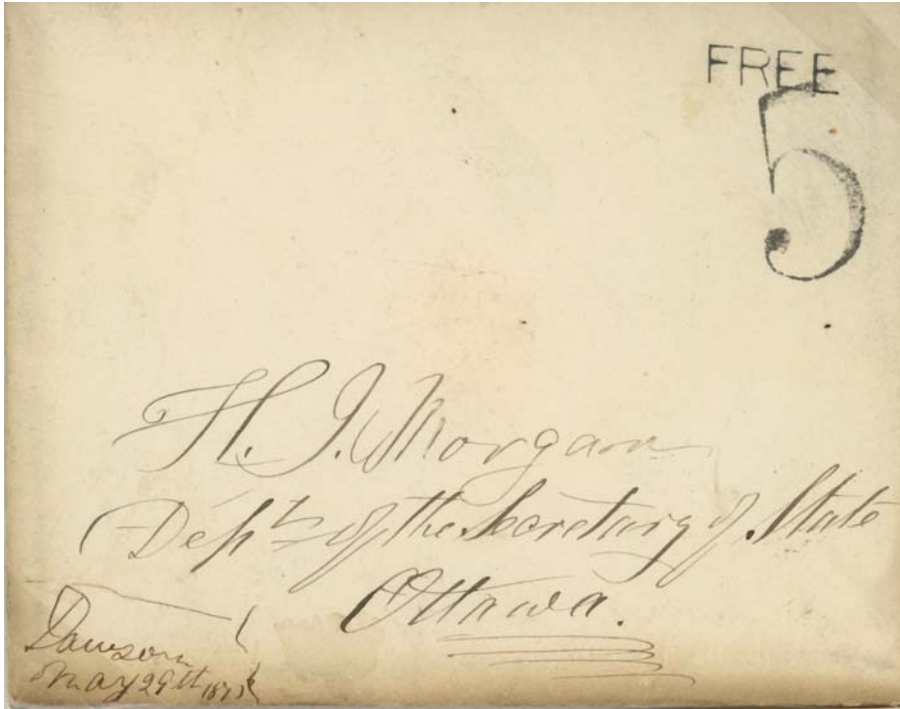 FREE
5
H. J. Morgan
Dept. of the Secretary of State
Ottawa.
Dawson
May 29th 1875